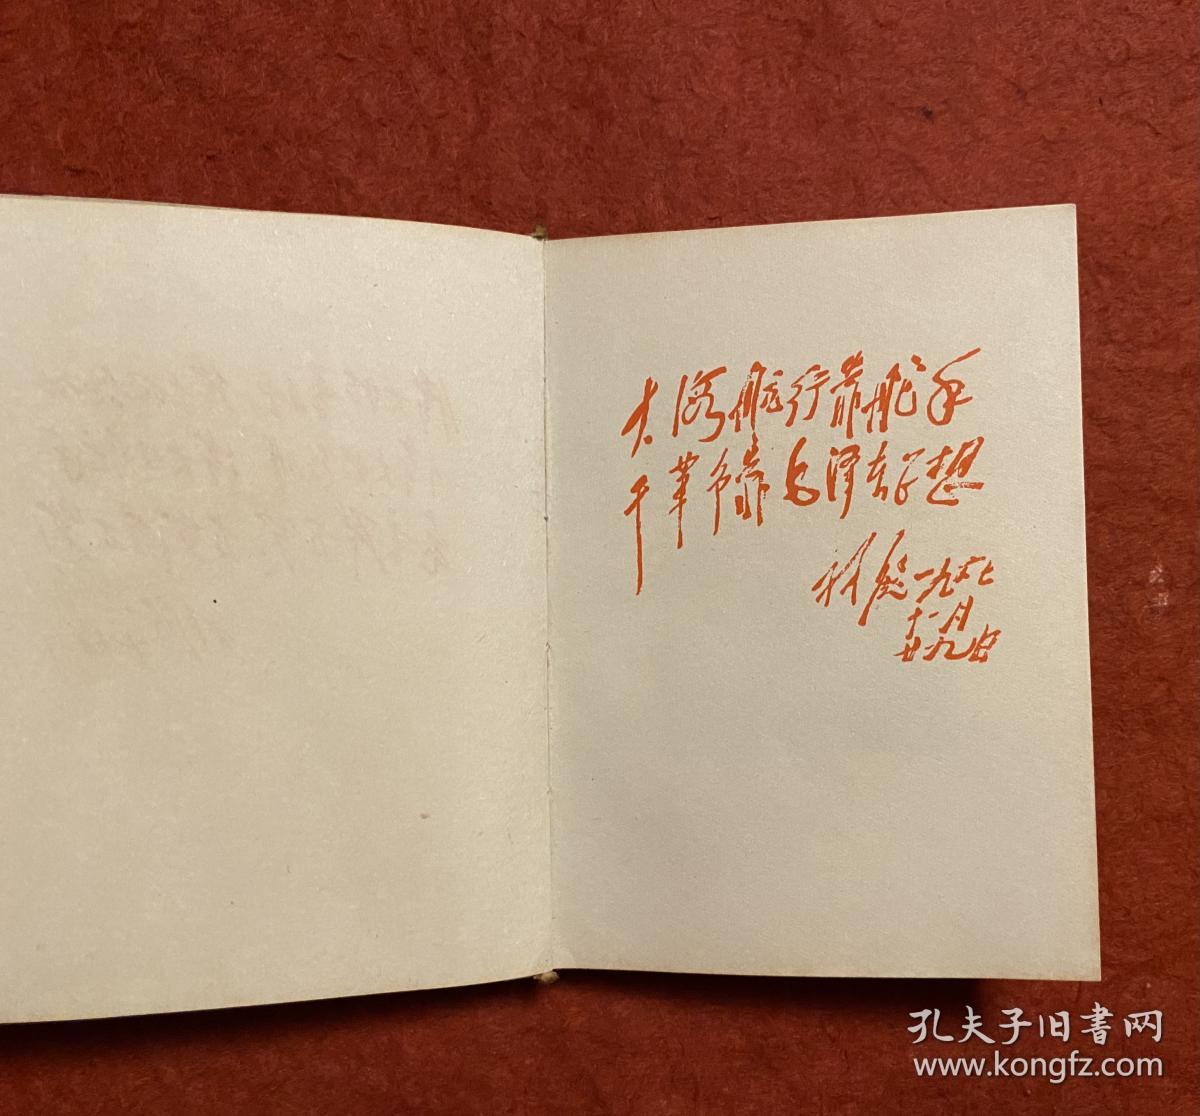 大海航行靠舵手
干革命靠毛泽东思想
林彪一九六七
十一月
廿九日
孔夫子旧書网
www.kongfz.com